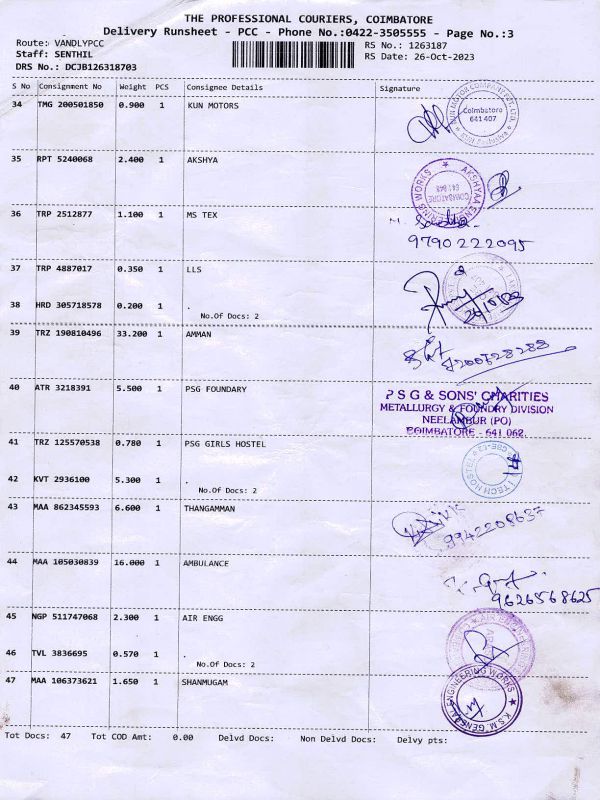 THE PROFESSIONAL COURIERS, COIMBATORE
Delivery Runsheet - PCC - Phone No.:0422-3505555 - Page No.:3
Route: VANDLYPCC
RS No.: 1263187
Staff: SENTHIL
RS Date: 26-Oct-2023
DRS No.: DCJB126318703
S No Consignment No Weight PCS Consignee Details Signature
34 TMG 200501850 0.900 1 KUN MOTORS
Coimbatore
641 407
35 RPT 5240068 2.400 1 AKSHYA
COIMBATORE
36 TRP 2512877 1.100 1 MS TEX
9790222095
37 TRP 4887017 0.350 1 LLS
38 HRD 305718578 0.200 1 .
No.Of Docs: 2
39 TRZ 190810496 33.200 1 AMMAN
40 ATR 3218391 5.500 1 PSG FOUNDARY
P S G & SONS' CHARITIES
METALLURGY & FOUNDRY DIVISION
NEELAMBUR (PO)
COIMBATORE - 641 062.
41 TRZ 125570538 0.780 1 PSG GIRLS HOSTEL
42 KVT 2936100 5.300 1 .
No.Of Docs: 2
43 MAA 862345593 6.600 1 THANGAMMAN
9942208637
44 MAA 105030839 16.000 1 AMBULANCE
9626568625
45 NGP 511747068 2.300 1 AIR ENGG
46 TVL 3836695 0.570 1 .
No.Of Docs: 2
47 MAA 106373621 1.650 1 SHANMUGAM
K.S.M. GENERAL ENGINEERING WORKS
Tot Docs: 47 Tot COD Amt: 0.00 Delvd Docs: Non Delvd Docs: Delvy pts: